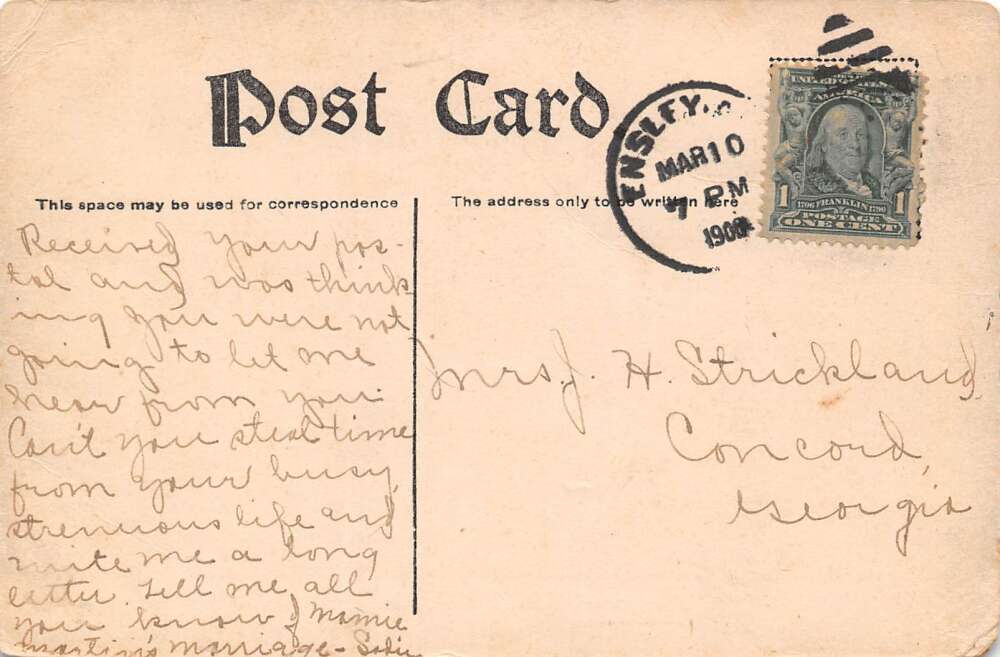 Post Card
This space may be used for correspondence
The address only to be written here
ENSLEY
MAR 10
7 PM
1908
UNITED STATES OF
AMERICA
1 1706 FRANKLIN 1790 1
POSTAGE
ONE CENT
Received your pos-
tal and was think-
ing you were not
going to let me
hear from you.
Can't you steal time
from your busy,
strenuous life and
write me a long
letter. Tell me all
you know of Mamie
Martin's marriage - Sadie
Mrs. J. H. Strickland,
Concord,
Georgia